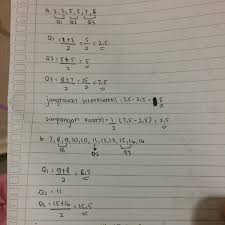 a. 2, 3, 5, 5, 7, 8
Q1 Q2 Q3
Q1 = 2+3 / 2 = 5 / 2 = 2,5
Q2 = 5+5 / 2 = 5
Q3 = 8+7 / 2 = 15 / 2 = 7,5
jangkauan interkuartil = 7,5 - 2,5 = 5
simpangan kuartil = 1/2 (7,5 - 2,5) = 2,5
b. 7, 8, 9, 10, 11, 13, 13, 15, 16, 16
Q1 Q2 Q3
Q1 = 9+8 / 2 = 8,5
Q2 = 11
Q3 = 15+16 / 2 = 15,5